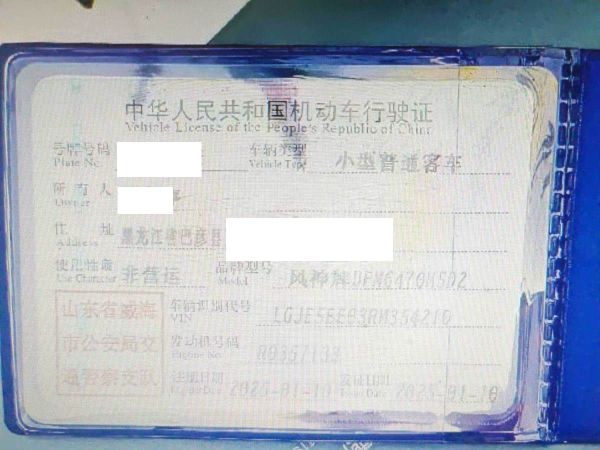 中华人民共和国机动车行驶证
Vehicle License of the People's Republic of China
号牌号码 Plate No. 车辆类型 Vehicle Type 小型普通客车
所有人 Owner
住址 Address 黑龙江省巴彦县
使用性质 Use Character 非营运 品牌型号 Model 风神牌DFM6470M5D2
山东省威海市公安局交通警察支队
车辆识别代号 VIN
发动机号码 Engine No.
注册日期 Register Date 2025-01-10 发证日期 Issue Date 2025-01-10